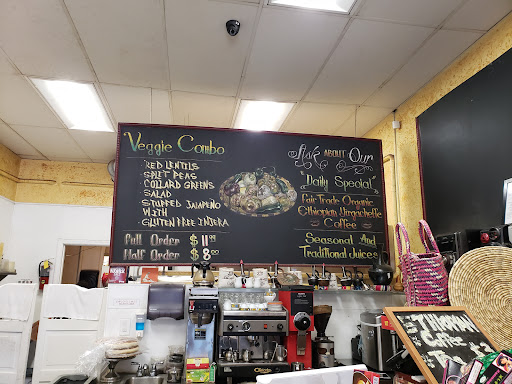 Veggie Combo
RED LENTILS
SPLIT PEAS
COLLARD GREENS
SALAD
STUFFED JALAPEÑO
WITH
GLUTEN FREE INJERA
Full Order $11.99
Half Order $8.00
Ask ABOUT Our
"Daily Special"
Fair Trade Organic
Ethiopian Yirgacheffe
Coffee
Seasonal And
Traditional Juices
Coffee